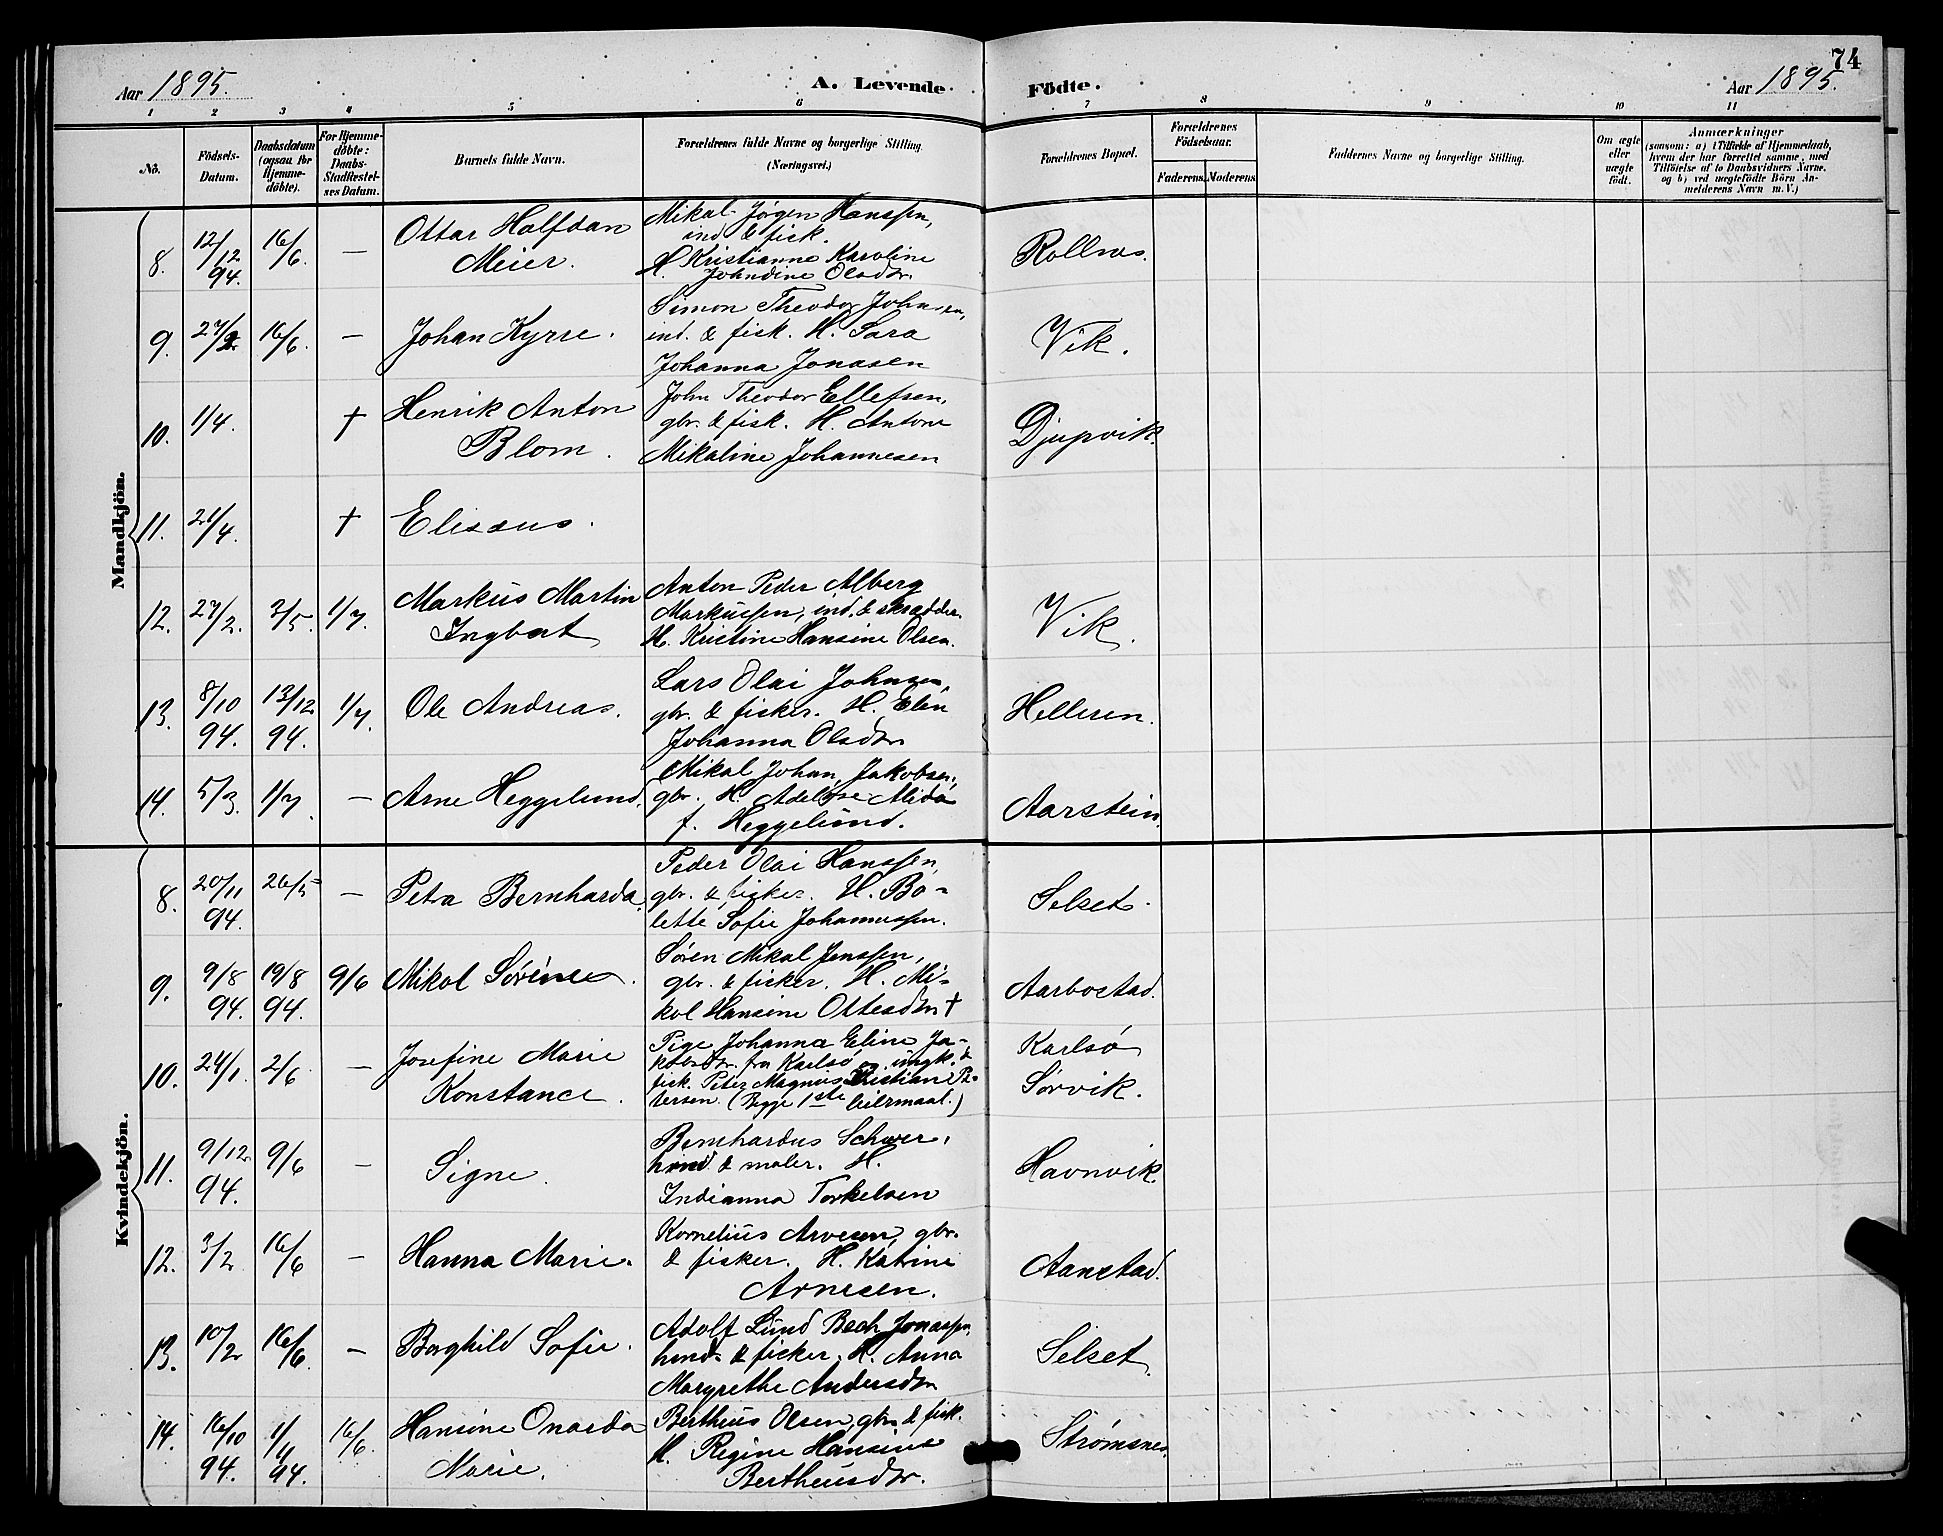 74
Aar 1895.
A. Levende Födte.
Aar 1895.
1 2 3 4 5 6 7 8 9 10 11
No.
Födsels-Datum.
Daabsdatum (ogsaa for Hjemme-döbte).
For Hjemme-döbte: Daabs-Stadfæstel-ses Datum.
Barnets fulde Navn.
Forældrenes fulde Navne og borgerlige Stilling. (Næringsvei.)
Forældrenes Bopæl.
Forældrenes Födselsaar.
Faderens. Moderens.
Faddernes Navne og borgerlige Stilling.
Om ægte eller uægte födt.
Anmærkninger
(saasom: a) i Tilfælde af Hjemmedaab,
hvem der har forrettet samme, med
Tilföielse af to Daabsvidners Navne,
og b) ved uægtefödte Börn An-
melderens Navn m. V.)
Mandkjön.
8. 12/12 94. 16/6. — Ottar Halfdan Meier.
Mikal Jögen Hanssen,
ind. & fisk.
H. Kristianne Karoline
Johndine Olsdtr.
Rollnes.
9. 27/2. 16/6. — Johan Kyrre.
Simon Theodor Johnsen,
ind. & fisk. H. Sara
Johanna Jonasen
Vik.
10. 1/4. † Henrik Anton Blom.
John Theodor Ellefsen,
gbr. & fisk. H. Antone
Mikaline Johannesen
Djupvik.
11. 21/4. † Elisæus.
12. 27/2. 3/5. 1/7. Markus Martin Ingbert
Anton Peder Alberg
Markussen, ind. & skrædder.
H. Kristine Hansine Olsen.
Vik.
13. 8/10 94. 13/12 94. 1/7. Ole Andreas.
Lars Olai Johnsen,
gbr. & fisker. H. Elen
Johanna Olsdtr.
Helleren.
14. 5/3. 1/7. — Arne Heggelund.
Mikal Johan Jakobsen,
gbr. H. Alida
f. Heggelund.
Aarstein.
Kvindekjön.
8. 20/11 94. 26/5 — Petra Bernharda.
Peder Olai Hanssen,
gbr. & fisker. H. Bo-
lette Sofie Johannessen.
Selset.
9. 9/8 94. 19/8 94. 9/6 Mikol Sörine.
Sören Mikal Jenssen,
gbr. & fisker. H. Mi-
kol Hansine Ottesdtr †
Aarbostad.
10. 24/1. 2/6. — Josefine Marie Konstance.
Pige Johanna Eline Ja-
kobsdtr. fra Karlsö og ungk. &
fisk. Peter Magnus Kristian Pe-
tersen. (Begge 1ste leiermaal.)
Karlsö
Sörvik.
11. 9/12 94. 9/6 — Signe.
Bernhardus Schwer,
hmd & maler. H.
Indianna Torkelsen
Havnvik.
12. 3/2 16/6 — Hanna Marie.
Kornelius Arnesen, gbr.
& fisker. H. Katrine
Arnesen.
Aanstad.
13. 10/2 16/6. — Borghild Sofie.
Adolf Lund Bech Jonassen,
hmd. & fisker. H. Anna
Margrethe Andersdtr
Selset.
14. 16/10 94. 1/11 94. 16/6. Hansine Onarda Marie.
Bertheus Olsen, gbr. & fisk.
H. Regine Hansine
Bertheusdtr.
Strömsnes.